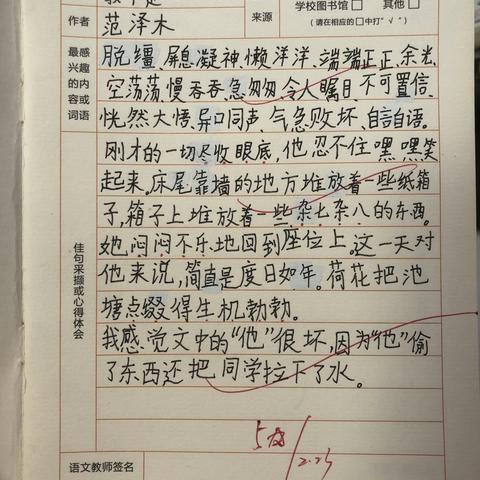 作者 范泽木 来源 学校图书馆□ 其他□
(请在相应的□中打"√")
最感兴趣的内容或词语
脱缰、屏息凝神、懒洋洋、端端正正、余光、
空荡荡、慢吞吞、急匆匆、令人瞩目、不可置信、
恍然大悟、异口同声、气急败坏、自言自语。
佳句采撷或心得体会
刚才的一切尽收眼底,他忍不住嘿嘿笑
起来。床尾靠墙的地方堆放着一些纸箱
子,箱子上堆放着一些杂七杂八的东西。
她闷闷不乐地回到座位上。这一天对
他来说,简直是度日如年。荷花把池
塘点缀得生机勃勃。
我感觉文中的“他”很坏,因为“他”偷
了东西还把同学拉下了水。
语文教师签名
2.25